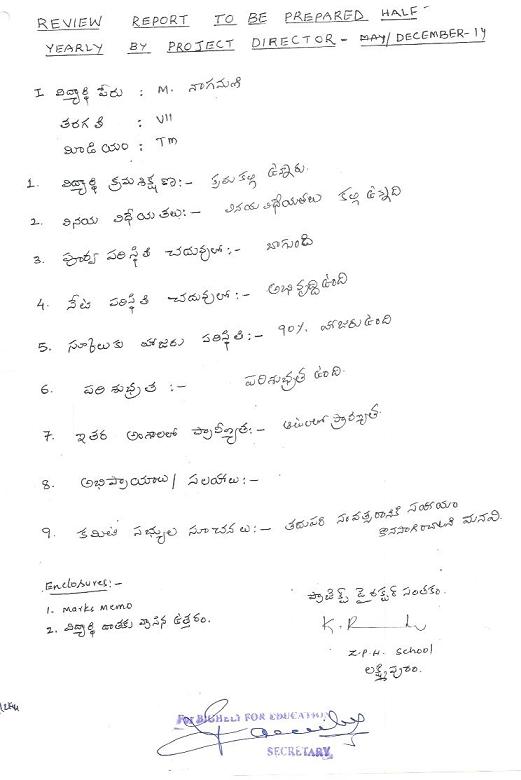 REVIEW REPORT TO BE PREPARED HALF-
YEARLY BY PROJECT DIRECTOR - MAY/DECEMBER-14
I విద్యార్థి పేరు : M. నాగమణి
తరగతి : VII
మీడియం : TM
1. విద్యార్థి క్రమశిక్షణ:- క్రమ కల్గి ఉన్నారు.
2. వినయ విధేయతలు:- వినయవిధేయతలు కల్గి ఉన్నది
3. పూర్వ పరిస్థితి చదువులో:- బాగుంది
4. నేటి పరిస్థితి చదువులో:- అభివృద్ధి ఉంది
5. స్కూలుకు హాజరు పరిస్థితి:- 90% హాజరు ఉంది
6. పరిశుభ్రత :- పరిశుభ్రత ఉంది.
7. ఇతర అంశాలలో ప్రావీణ్యత:- ఆటలలో ప్రావీణ్యత
8. అభిప్రాయాలు/ సలహాలు:-
9. కమిటీ సభ్యుల సూచనలు:- తదుపరి సంవత్సరానికి సహాయం
కొనసాగించాలని మనవి.
Enclosures:-
1. Marks Memo
2. విద్యార్థి దాతకు వ్రాసిన ఉత్తరం.
ప్రాజెక్ట్ డైరెక్టర్ సంతకం.
Z.P.H. School
లక్ష్మీపురం.
For BIGHELP FOR EDUCATION
SECRETARY